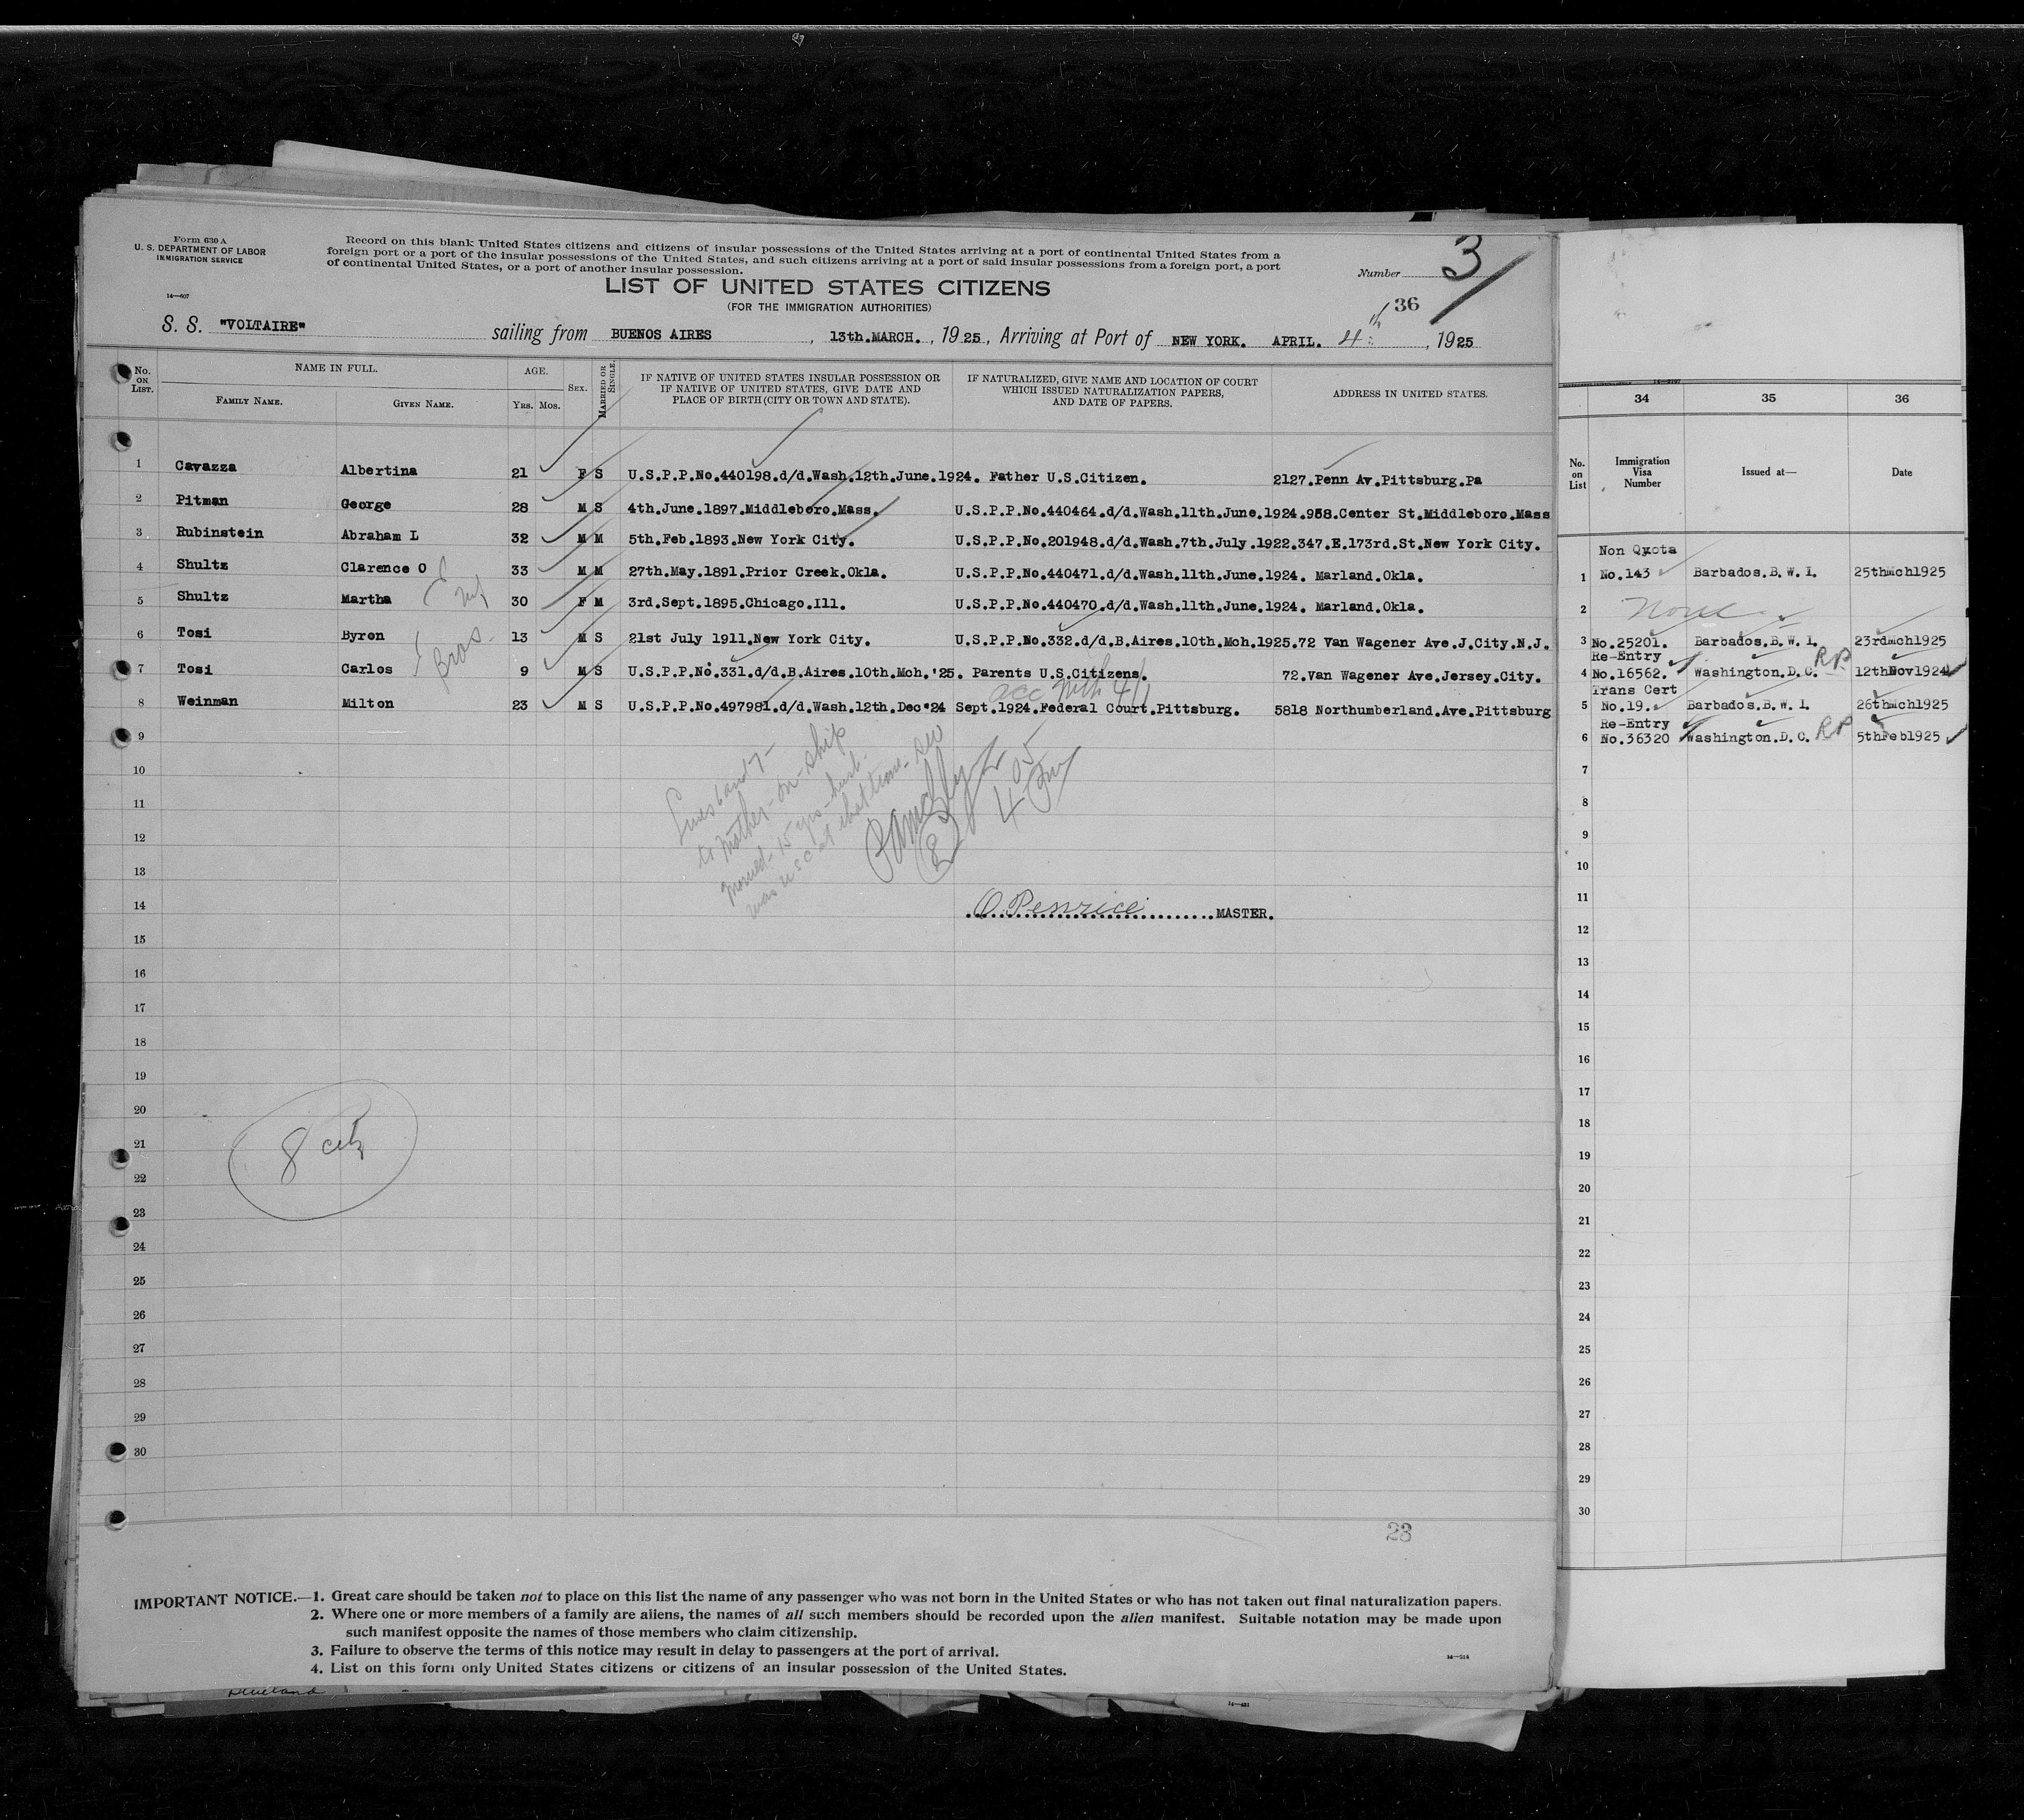 Form 630 A
U. S. DEPARTMENT OF LABOR
IMMIGRATION SERVICE
14—607
Record on this blank United States citizens and citizens of insular possessions of the United States arriving at a port of continental United States from a
foreign port or a port of the insular possessions of the United States, and such citizens arriving at a port of said insular possessions from a foreign port, a port
of continental United States, or a port of another insular possession.
Number 3
LIST OF UNITED STATES CITIZENS
(FOR THE IMMIGRATION AUTHORITIES)
36
S. S. "VOLTAIRE" sailing from BUENOS AIRES , 13th.MARCH. , 1925, Arriving at Port of NEW YORK. APRIL. 4th , 1925
No. ON LIST.
NAME IN FULL.
FAMILY NAME. GIVEN NAME.
AGE.
YRS. MOS.
SEX.
MARRIED OR SINGLE.
IF NATIVE OF UNITED STATES INSULAR POSSESSION OR
IF NATIVE OF UNITED STATES, GIVE DATE AND
PLACE OF BIRTH (CITY OR TOWN AND STATE).
IF NATURALIZED, GIVE NAME AND LOCATION OF COURT
WHICH ISSUED NATURALIZATION PAPERS,
AND DATE OF PAPERS.
ADDRESS IN UNITED STATES.
1 Cavazza Albertina 21 F S U.S.P.P.No.440198.d/d.Wash.12th.June.1924. Father U.S.Citizen. 2127.Penn Av.Pittsburg.Pa
2 Pitman George 28 M S 4th.June.1897.Middleboro.Mass. U.S.P.P.No.440464.d/d.Wash.11th.June.1924.958.Center St.Middleboro.Mass
3 Rubinstein Abraham L 32 M M 5th.Feb.1893.New York City. U.S.P.P.No.201948.d/d.Wash.7th.July.1922.347.E.173rd.St.New York City.
4 Shultz Clarence O 33 M M 27th.May.1891.Prior Creek.Okla. U.S.P.P.No.440471.d/d.Wash.11th.June.1924. Marland.Okla.
5 Shultz Martha 30 F M 3rd.Sept.1895.Chicago.Ill. U.S.P.P.No.440470.d/d.Wash.11th.June.1924. Marland.Okla.
6 Tosi Byron 13 M S 21st July 1911.New York City. U.S.P.P.No.332.d/d.B.Aires.10th.Mch.1925.72 Van Wagener Ave.J.City.N.J.
Bros.
7 Tosi Carlos 9 M S U.S.P.P.No.331.d/d.B.Aires.10th.Mch.'25. Parents U.S.Citizens. 72.Van Wagener Ave.Jersey.City.
acc with 4/1
8 Weinman Milton 23 M S U.S.P.P.No.497981.d/d.Wash.12th.Dec'24 Sept.1924.Federal Court.Pittsburg. 5818 Northumberland.Ave.Pittsburg
9
10
11
12
13
14
15
16
17
18
19
20
21
22
23
24
25
26
27
28
29
30
to mother-on-ship
married-15 yrs-husb.
was USC at that time-
8
O Penrice MASTER.
8 cit
23
IMPORTANT NOTICE.—1. Great care should be taken not to place on this list the name of any passenger who was not born in the United States or who has not taken out final naturalization papers.
2. Where one or more members of a family are aliens, the names of all such members should be recorded upon the alien manifest. Suitable notation may be made upon
such manifest opposite the names of those members who claim citizenship.
3. Failure to observe the terms of this notice may result in delay to passengers at the port of arrival.
4. List on this form only United States citizens or citizens of an insular possession of the United States.
14—214
34 35 36
No. on List
Immigration Visa Number
Issued at—
Date
Non Quota
1 No.143 Barbados.B.W.I. 25thMch1925
2 None
3 No.25201. Barbados.B.W.I. 23rdMch1925
Re-Entry
4 No.16562. Washington.D.C. RP 12thNov1924
Trans Cert
5 No.19. Barbados.B.W.I. 26thMch1925
Re-Entry
6 No.36320 Washington.D.C. RP 5thFeb1925
7
8
9
10
11
12
13
14
15
16
17
18
19
20
21
22
23
24
25
26
27
28
29
30